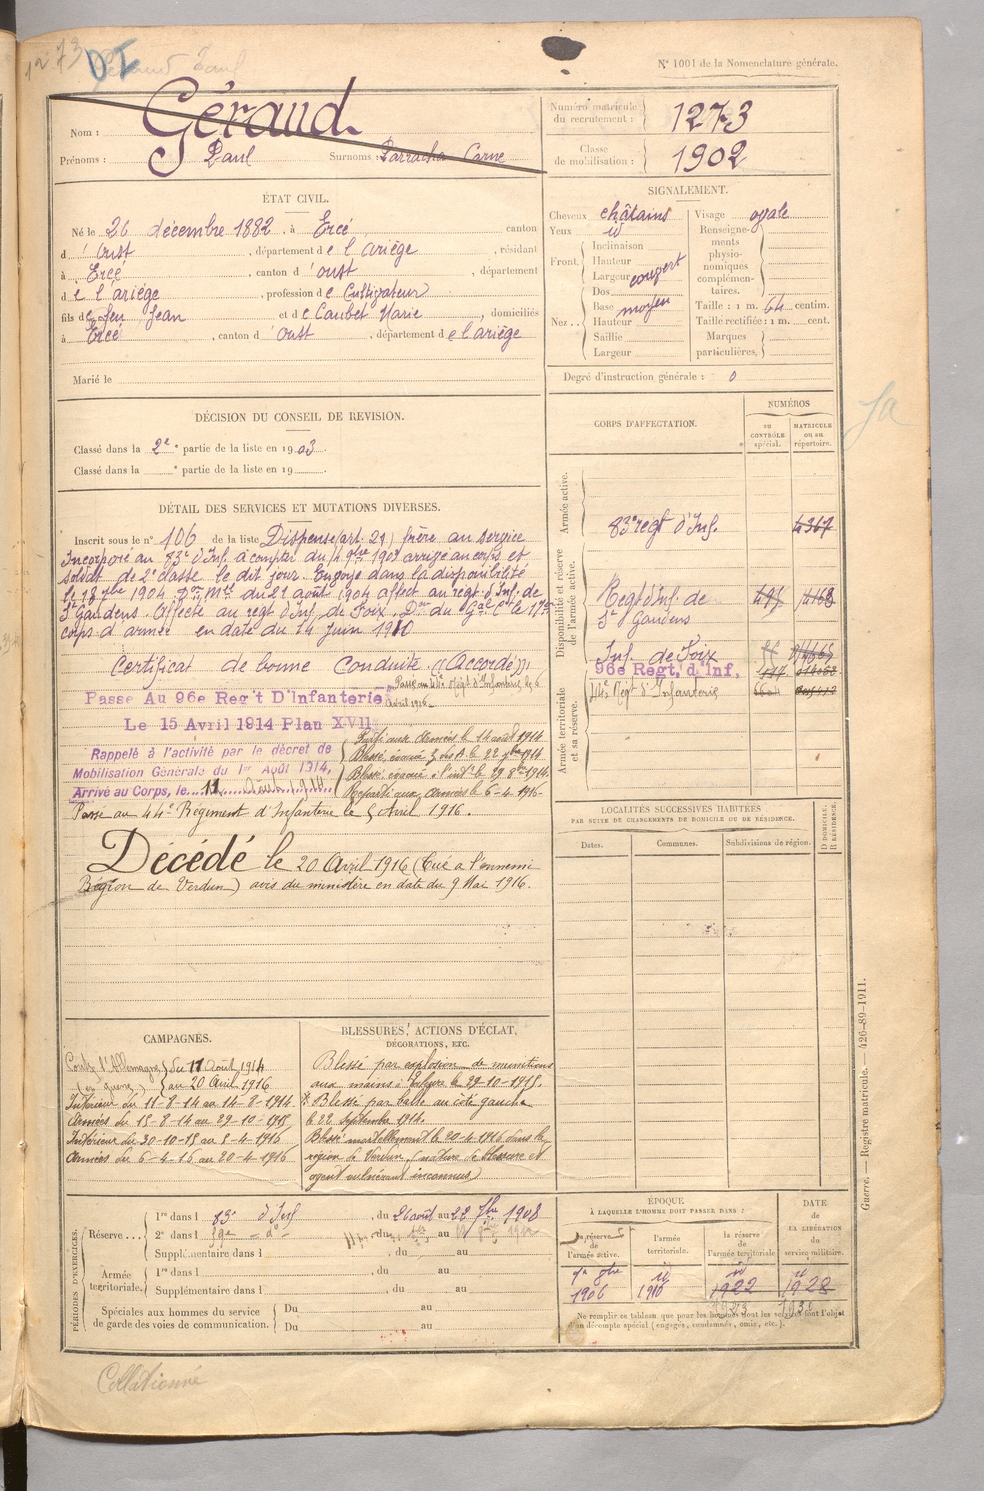 1273
N° 1001 de la Nomenclature générale.
Nom : Géraud
Prénoms : Paul Surnoms : Parracha Carne
Numéro matricule du recrutement : 1273
Classe de mobilisation : 1902
ÉTAT CIVIL.
Né le 26 décembre 1882, à Ercé canton
d'Oust, département de l'ariège, résidant
à Ercé, canton d'oust, département
de l'ariège, profession de Cultivateur
fils de feu Jean et de Caubet Marie, domiciliés
à Ercé, canton d'Oust, département de l'ariège
Marié le
SIGNALEMENT.
Cheveux châtains
Yeux id
Front.
Inclinaison
Hauteur
Largeur couvert
Nez
Dos
Base moyen
Hauteur
Saillie
Largeur
Visage ovale
Renseignements physionomiques complémentaires.
Taille : 1 m. 64 centim.
Taille rectifiée : 1 m. cent.
Marques particulières,
Degré d'instruction générale : 0
DÉCISION DU CONSEIL DE REVISION.
Classé dans la 2e partie de la liste en 1903.
Classé dans la e partie de la liste en 19
DÉTAIL DES SERVICES ET MUTATIONS DIVERSES.
Inscrit sous le n° 106 de la liste Dispensé (art. 21) frère au service
Incorporé au 83e d'Inf. à compter du 14 9bre 1903 arrivé au corps et
soldat de 2e classe le dit jour. Envoyé dans la disponibilité
le 18 7bre 1904. Don Mlle du 21 août 1904 affect au regt d'Inf. de
St Gaudens. Affecté au regt d'Inf. de Foix. Don du Gal Ct le 17e
corps d'armée en date du 14 Juin 1910
Certificat de bonne conduite "Accordé"
Passé Au 96e Reg't D'Infanterie
Le 15 Avril 1914 Plan XVII
Passé au 44e Régt d'Infanterie le 6
Avril 1916
Rappelé à l'activité par le décret de
Mobilisation Générale du 1er Août 1914,
Arrivé au Corps, le 11 Août 1914
Parti aux Armées le 14 août 1914
Blessé, évacué le 22 7bre 1914
Blessé évacué à l'intr le 29 8bre 1914.
Reparti aux Armées le 6-4-1916
Passé au 44e Régiment d'Infanterie le 5 Avril 1916.
Décédé le 20 Avril 1916 (Tué à l'ennemi
Région de Verdun) avis du ministère en date du 9 Mai 1916.
CORPS D'AFFECTATION.
NUMÉROS
AU CONTRÔLE spécial.
MATRICULE ou au répertoire.
Armée active.
83e regt d'Inf. 4367
Disponibilité et réserve de l'armée active.
Regt d'Inf. de
St Gaudens
Inf. de Foix
96e Régt. d'Inf,
44e Régt d'Infanterie
Armée territoriale et sa réserve.
LOCALITÉS SUCCESSIVES HABITÉES
PAR SUITE DE CHANGEMENTS DE DOMICILE OU DE RÉSIDENCE.
Dates. Communes. Subdivisions de région. D DOMICILE, R RÉSIDENCE.
CAMPAGNES.
Contre l'Allemagne du 11 Août 1914
(en guerre) au 20 Avril 1916
Intérieur du 11-8-14 au 14-8-1914
Armées du 15-8-14 au 29-10-1915
Intérieur du 30-10-15 au 5-4-1916
Armées du 6-4-16 au 20-4-1916
BLESSURES, ACTIONS D'ÉCLAT,
DÉCORATIONS, ETC.
Blessé par explosion de munitions
aux mains à le 29-10-1915.
Blessé par balle au côté gauche
le 22 septembre 1914.
Blessé mortellement le 20-4-1916 dans la
région de Verdun (nature de blessure et
agent vulnérant inconnus)
PÉRIODES D'EXERCICES.
Réserve
1re dans l 83e d'Inf, du 26 août au 22 7bre 1908
2e dans l
Supplémentaire dans l , du au
Armée territoriale.
1re dans l , du au
Supplémentaire dans l , du au
Spéciales aux hommes du service de garde des voies de communication.
Du au
Du au
ÉPOQUE
À LAQUELLE L'HOMME DOIT PASSER DANS :
la réserve de l'armée active.
l'armée territoriale.
la réserve de l'armée territoriale
DATE de LA LIBÉRATION du service militaire.
1906 1916 1922 1928
Ne remplir ce tableau que pour les hommes dont les services font l'objet
d'un décompte spécial (engagés, condamnés, omis, etc.).
Guerre. — Registre matricule. — 426-89-1911.
Collationné